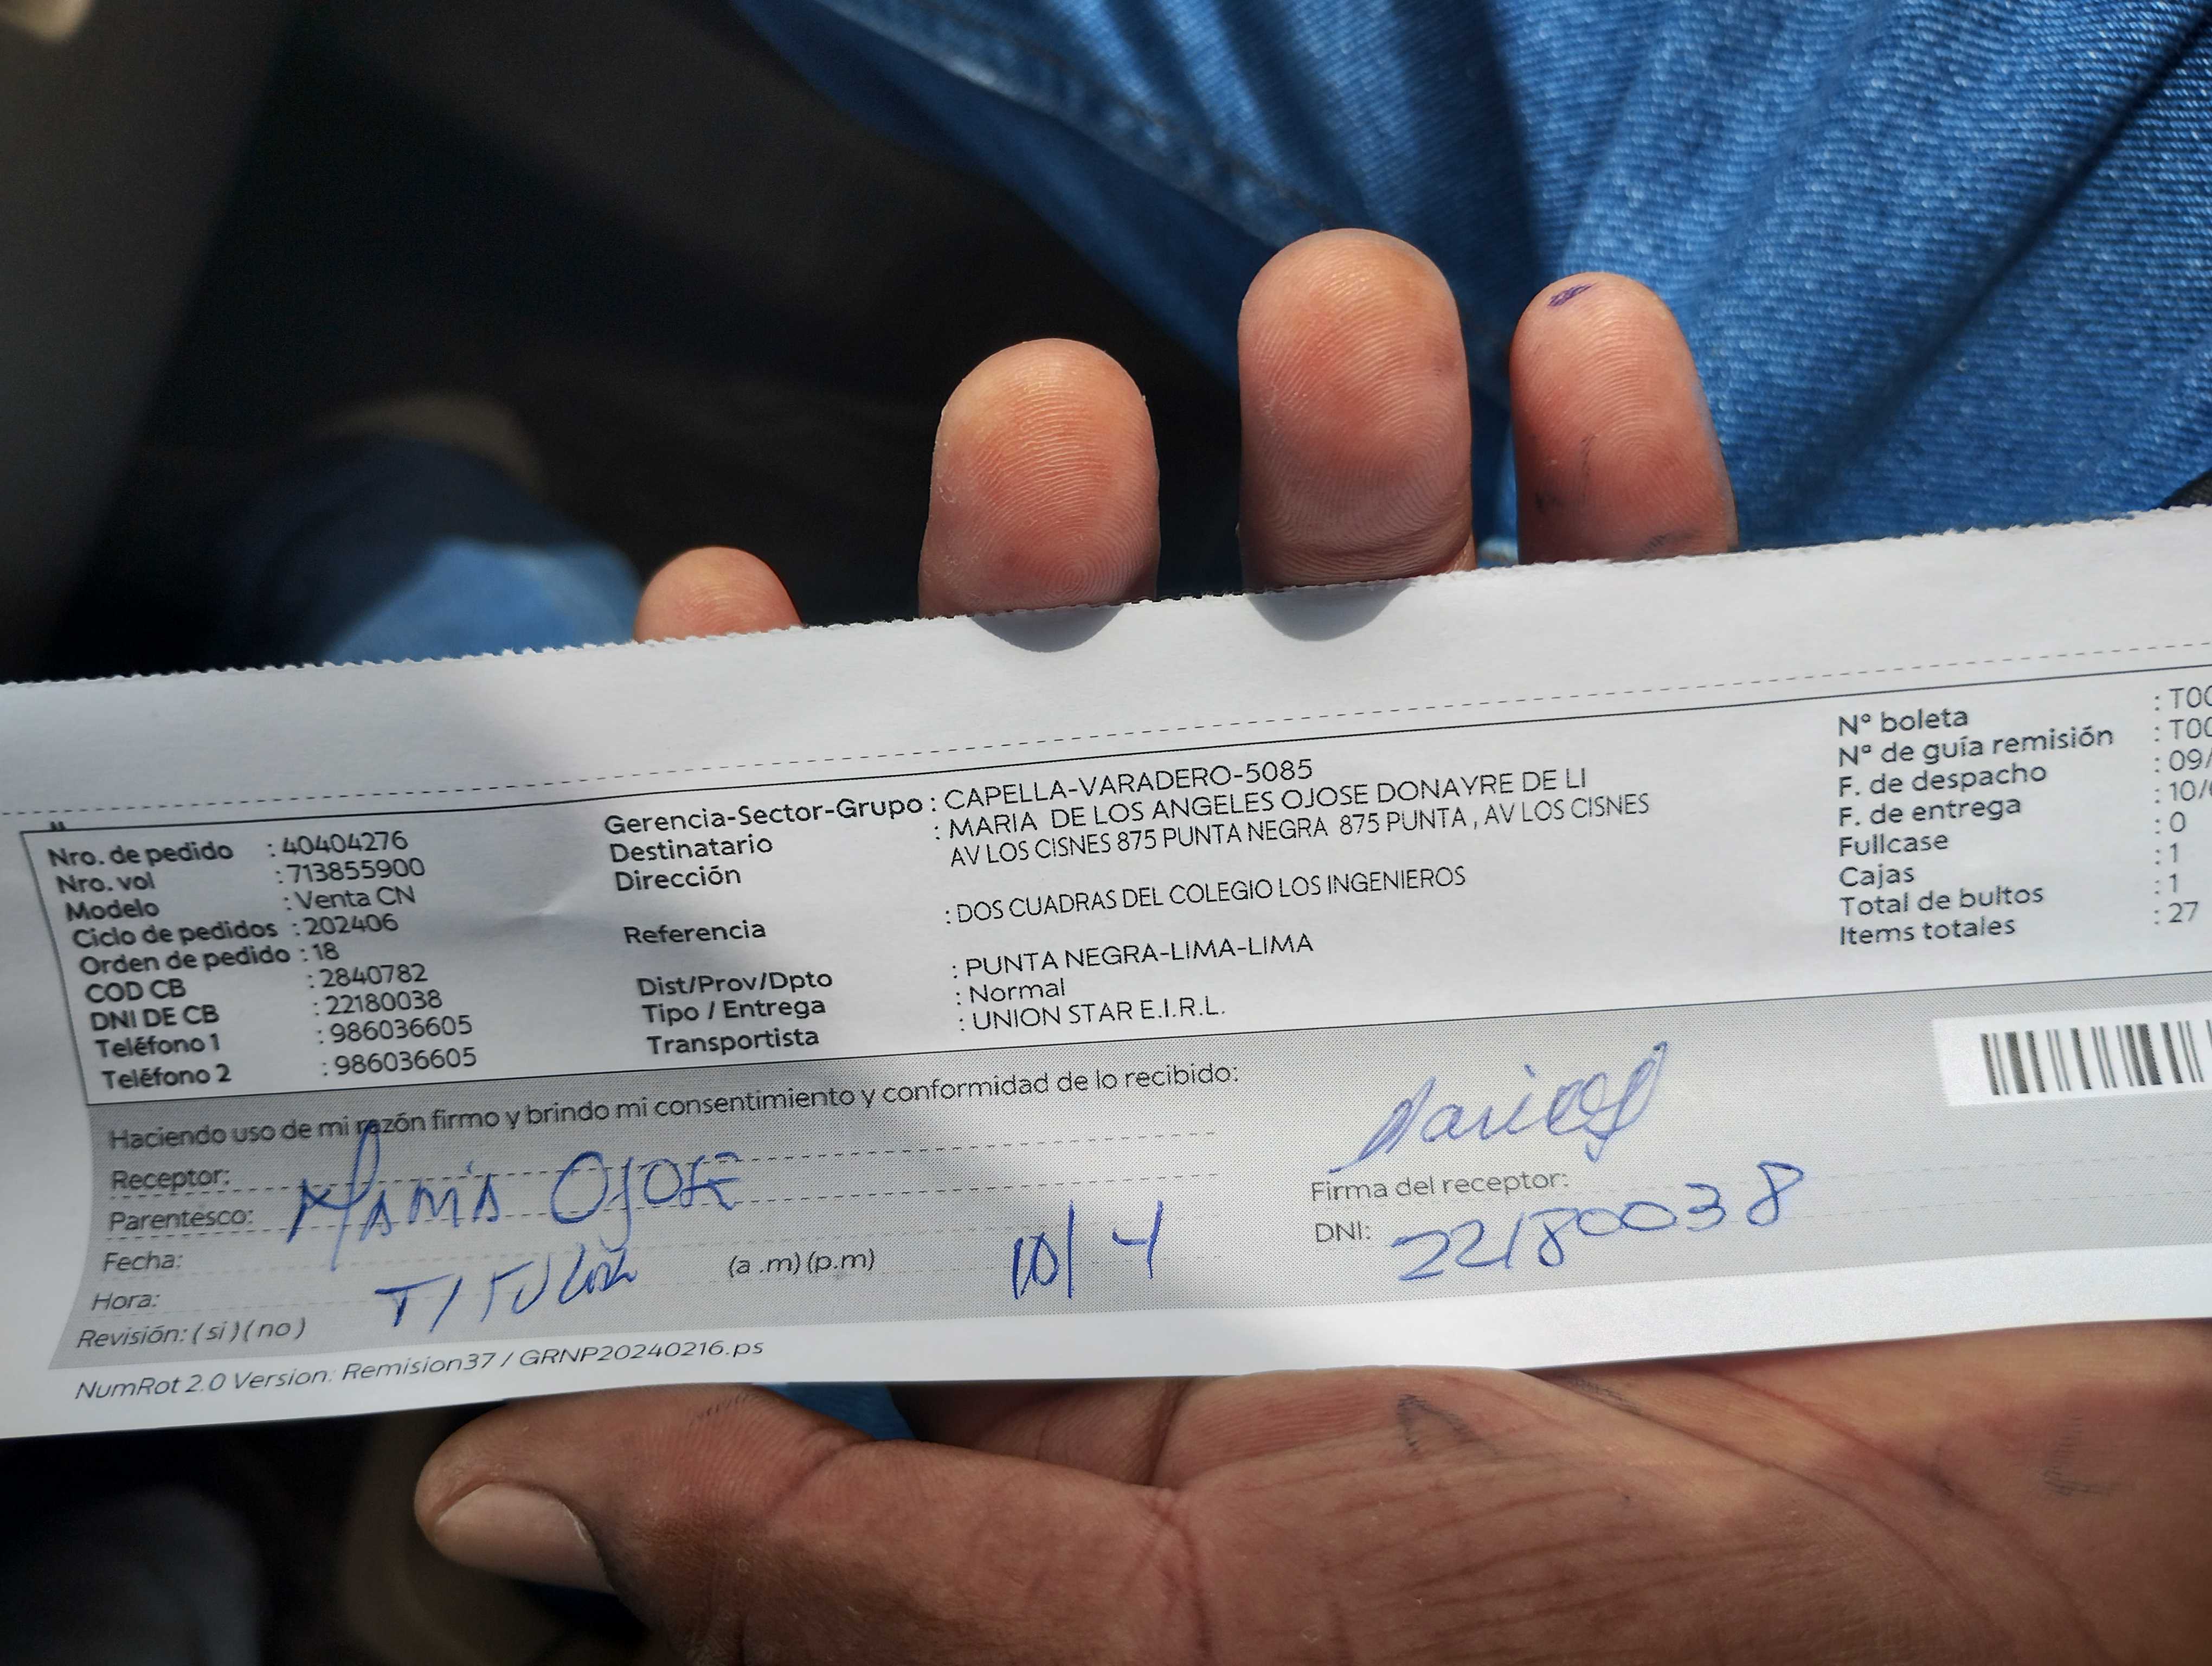 Nro. de pedido : 40404276
Nro. vol : 713855900
Modelo : Venta CN
Ciclo de pedidos : 202406
Orden de pedido : 18
COD CB : 2840782
DNI DE CB : 22180038
Teléfono 1 : 986036605
Teléfono 2 : 986036605
Gerencia-Sector-Grupo : CAPELLA-VARADERO-5085
Destinatario : MARIA DE LOS ANGELES OJOSE DONAYRE DE LI
Dirección AV LOS CISNES 875 PUNTA NEGRA 875 PUNTA , AV LOS CISNES
Referencia : DOS CUADRAS DEL COLEGIO LOS INGENIEROS
Dist/Prov/Dpto : PUNTA NEGRA-LIMA-LIMA
Tipo / Entrega : Normal
Transportista : UNION STAR E.I.R.L.
N° boleta : T00
N° de guía remisión : T00
F. de despacho : 09/
F. de entrega : 10/
Fullcase : 0
Cajas : 1
Total de bultos : 1
Items totales : 27
Haciendo uso de mi razón firmo y brindo mi consentimiento y conformidad de lo recibido:
Receptor:
Parentesco: MARIA OJOSE
Fecha:
Hora: TITULAR (a .m) (p.m) 10/4
Revisión: ( si ) ( no )
Firma del receptor:
DNI: 22180038
NumRot 2.0 Version: Remision37 / GRNP20240216.ps